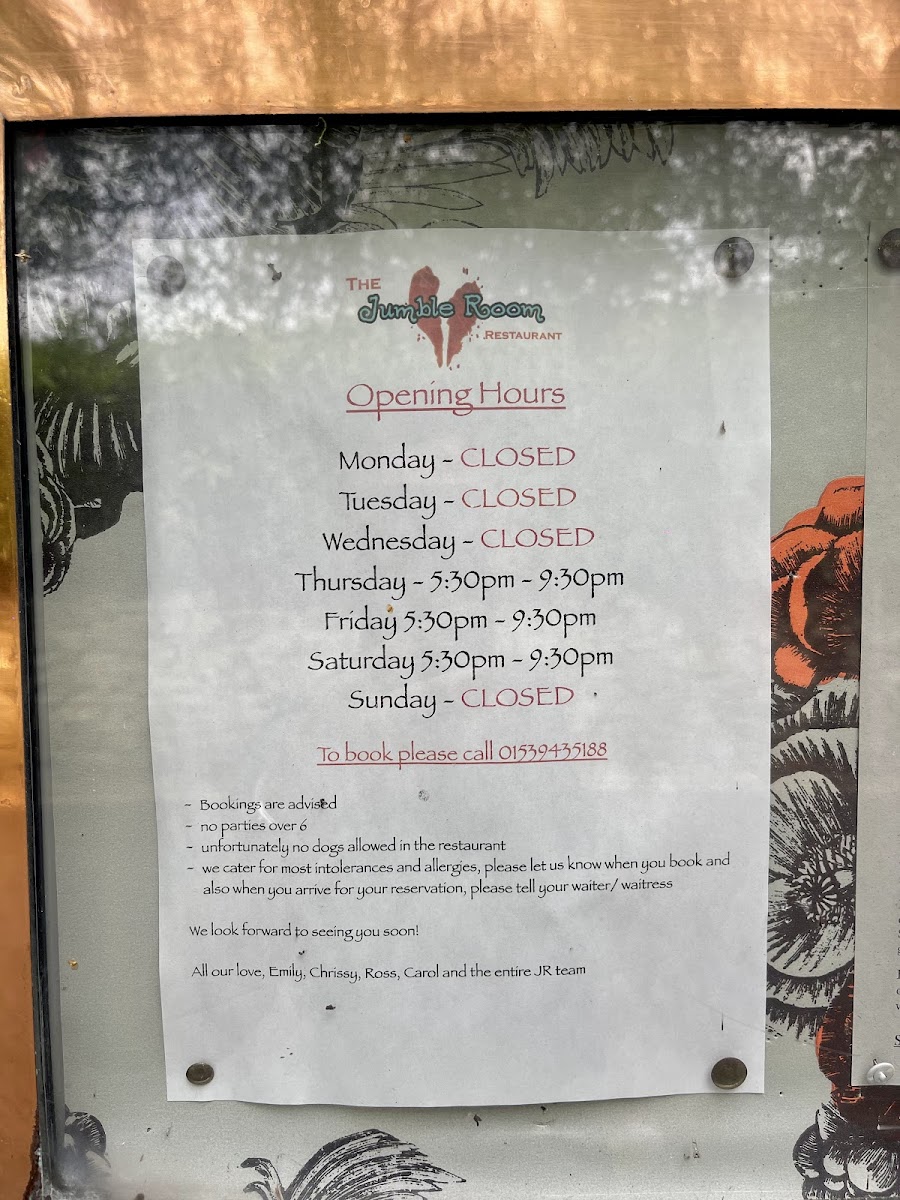 THE
Jumble Room
RESTAURANT
Opening Hours
Monday - CLOSED
Tuesday - CLOSED
Wednesday - CLOSED
Thursday - 5:30pm - 9:30pm
Friday 5:30pm - 9:30pm
Saturday 5:30pm - 9:30pm
Sunday - CLOSED
To book please call 01539435188
- Bookings are advised
- no parties over 6
- unfortunately no dogs allowed in the restaurant
- we cater for most intolerances and allergies, please let us know when you book and
also when you arrive for your reservation, please tell your waiter/ waitress
We look forward to seeing you soon!
All our love, Emily, Chrissy, Ross, Carol and the entire JR team